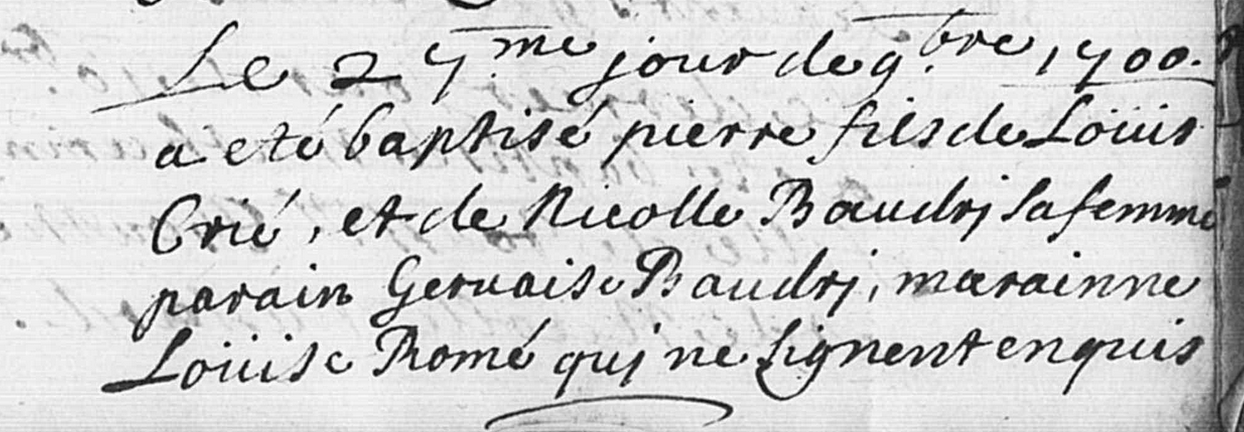 Le 27.me jour de 9.bre 1700.
a eté baptisé pierre fils de Loüis
Crié, et de Nicolle Baudrj sa femme
parain Gervaise Baudrj, marainne
Loüise Romé quj ne signent enquis